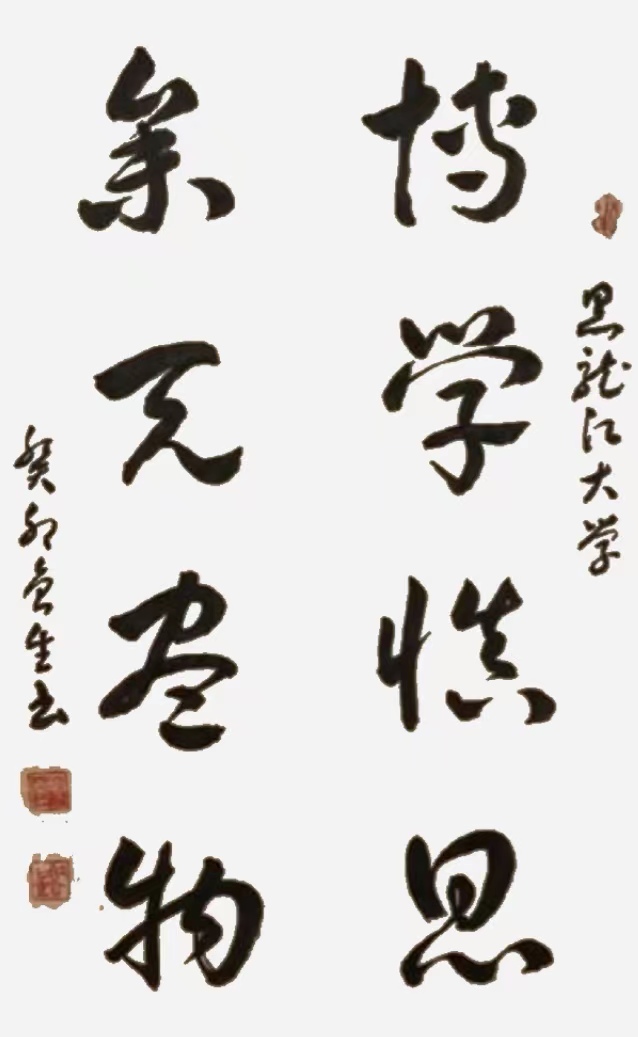 黑龙江大学
博学慎思
参天尽物
癸卯生书